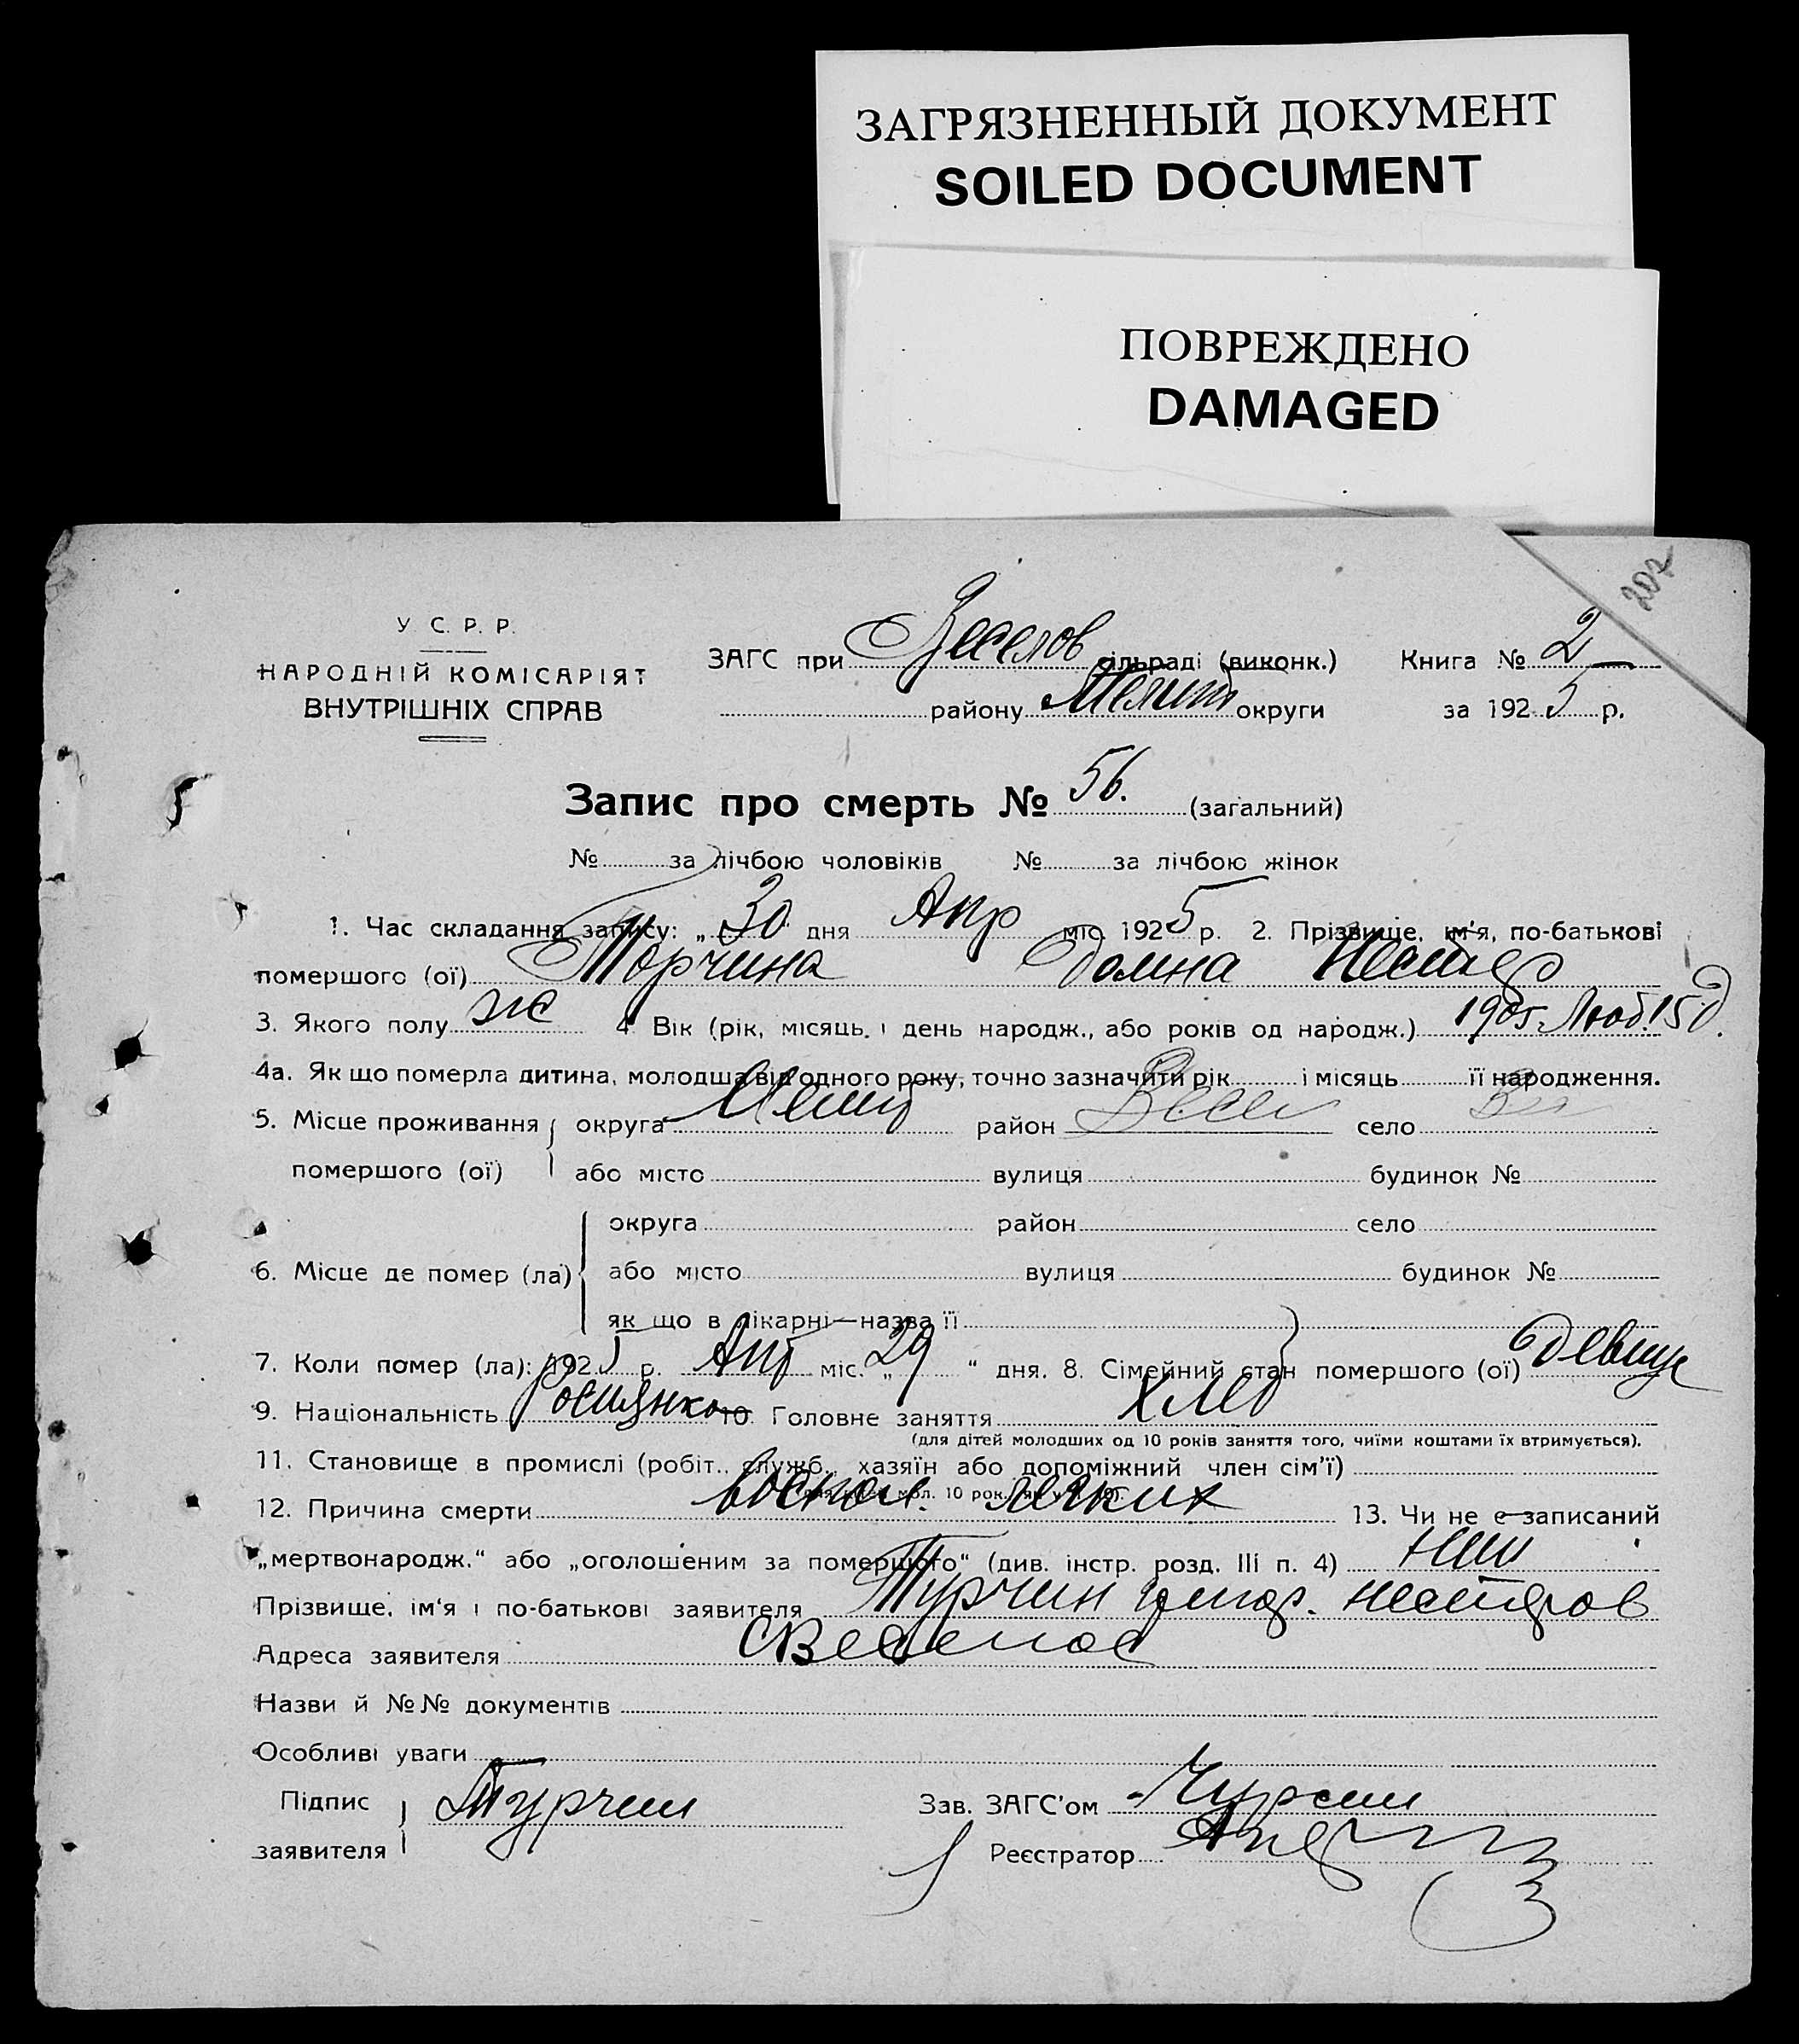 ЗАГРЯЗНЕННЫЙ ДОКУМЕНТ
SOILED DOCUMENT
ПОВРЕЖДЕНО
DAMAGED
207
У. С. Р. Р.
НАРОДНІЙ КОМІСАРІЯТ
ВНУТРІШНІХ СПРАВ
ЗАГС при Веселов сільраді (виконк.) Книга № 2
району Мелит округи за 1925 р.
Запис про смерть № 56. (загальний)
№ за лічбою чоловіків № за лічбою жінок
1. Час складання запису: „ 30 дня Апр міс. 1925 р. 2. Прізвище, ім'я, по-батькові
помершого (ої) Торчина Домна Нестер
3. Якого полу ж 4. Вік (рік, місяць і день народж., або років од народж.) 1905 Люб. 15 д.
4а. Як що померла дитина, молодша від одного року, точно зазначити рік і місяць її народження.
5. Місце проживання округа Мелит район Весел село
помершого (ої) або місто вулиця будинок №
округа район село
6. Місце де помер (ла) або місто вулиця будинок №
як що в лікарні—назва її
7. Коли помер (ла): 1925 р. Апр міс. „ 29 “ дня. 8. Сімейний стан помершого (ої) девица
9. Національність 10. Головне заняття Хлеб
(для дітей молодших од 10 років заняття того, чиїми коштами їх втримується).
11. Становище в промислі (робіт., служб., хазяїн або допоміжний член сім'ї)
12. Причина смерти воспал. легких 13. Чи не є записаний
„мертвонародж.“ або „оголошеним за помершого“ (див. інстр. розд. III п. 4)
Прізвище, ім'я і по-батькові заявителя Турчин Григор. Нестеров
Адреса заявителя
Назви й №№ документів
Особливі уваги
Підпис Турчин Зав. ЗАГС'ом
заявителя Реєстратор